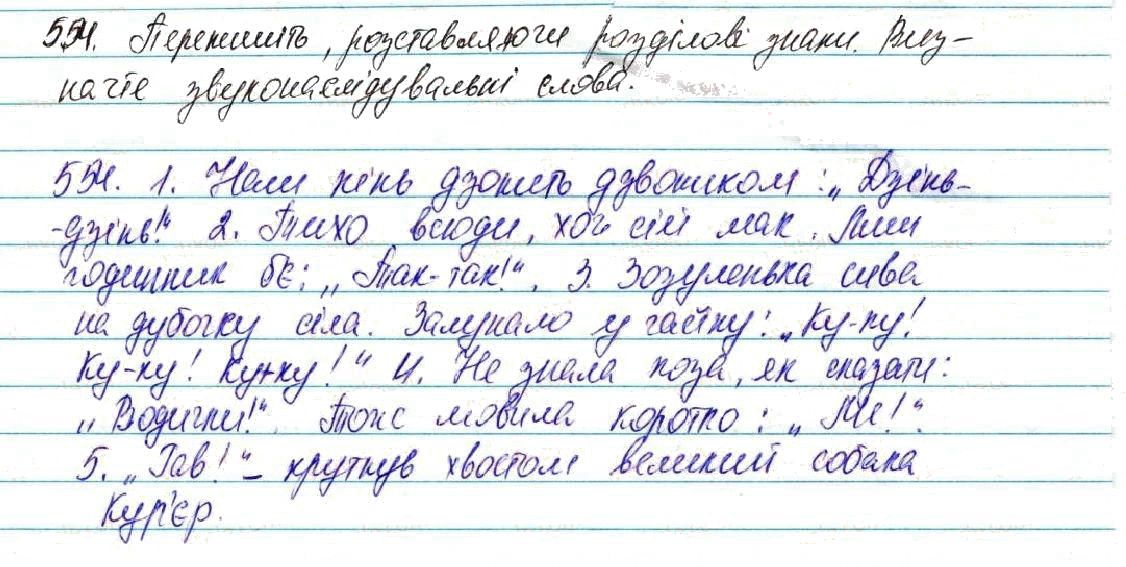 554. Перепишіть, розставляючи розділові знаки. Виз-
начте звуконаслідувальні слова.
554. 1. Наш кінь дзонить дзвоником: „Дзінь-
-дзінь!" 2. Тихо всюди, хоч сій мак. Лиш
годинник б'є: „Так-так!". 3. Зозуленька сива
на дубочку сіла. Залунало у гайку: „Ку-ку!
Ку-ку! Ку-ку!" 4. Не знала коза, як сказати:
„Водички!". Тож мовила коротко: „Ме!".
5. „Гав!" – крутнув хвостом великий собака
Кур'єр.